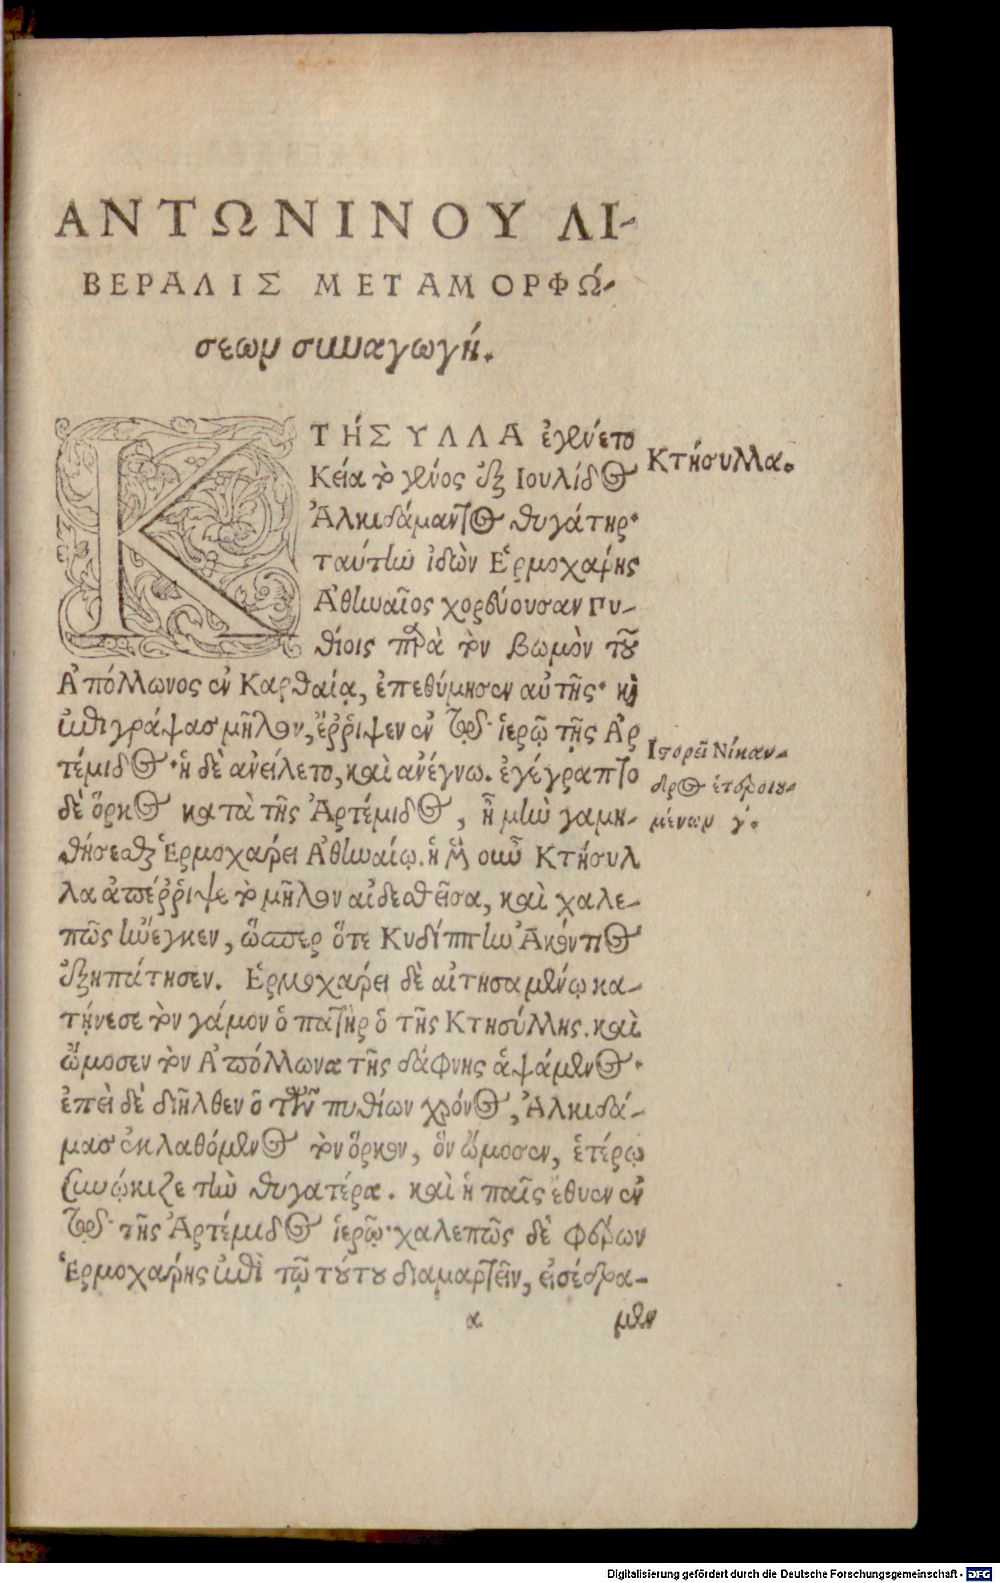 ΑΝΤΩΝΙΝΟΥ ΛΙ-
ΒΕΡΑΛΙΣ ΜΕΤΑΜΟΡΦΏ-
σεων συναγωγή.
ΚΤΉΣΥΛΛΑ ἐγένετο
Κτήσυλλα.
Κεία τὸ γένος ἐξ Ιουλίδος
Ἀλκιδάμαντος θυγάτηρ·
ταύτην ἰδὼν Ἑρμοχάρης
Ἀθηναῖος χορεύουσαν Πυ-
θίοις παρὰ τὸν βωμὸν τοῦ
Ἀπόλλωνος ἐν Καρθαίᾳ, ἐπεθύμησεν αὐτῆς· καὶ
ἐπιγράψας μῆλον, ἔῤῥιψεν ἐν τῷ ἱερῷ τῆς Ἀρ
τέμιδος· ἡ δὲ ἀνείλετο, καὶ ἀνέγνω. ἐγέγραπτο
Ἱστορεῖ Νίκαν-
δρος ἑτεροιου-
μένων γ΄.
δὲ ὅρκος κατὰ τῆς Ἀρτέμιδος, ἦ μὴν γαμη-
θήσεσθαι Ἑρμοχάρει Ἀθηναίῳ. ἡ μὲν οὖν Κτήσυλ
λα ἀπέῤῥιψε τὸ μῆλον αἰδεσθεῖσα, καὶ χαλε-
πῶς ἤνεγκεν, ὥσπερ ὅτε Κυδίππην Ἀκόντιος
ἐξηπάτησεν. Ἑρμοχάρει δὲ αἰτησαμένῳ κα-
τῄνεσε τὸν γάμον ὁ πατὴρ ὁ τῆς Κτησύλλης. καὶ
ὤμοσεν τὸν Ἀπόλλωνα τῆς δάφνης ἁψάμενος·
ἐπεὶ δὲ διῆλθεν ὁ τῶν πυθίων χρόνος, Ἀλκιδά-
μας ἐκλαθόμενος τὸν ὅρκον, ὃν ὤμοσεν, ἑτέρῳ
συνῴκιζε τὴν θυγατέρα. καὶ ἡ παῖς ἔθυεν ἐν
τῷ τῆς Ἀρτέμιδος ἱερῷ· χαλεπῶς δὲ φέρων
Ἑρμοχάρης ἐπὶ τῷ τοῦ γάμου διαμαρτεῖν, εἰσέδρα-
α
μεν